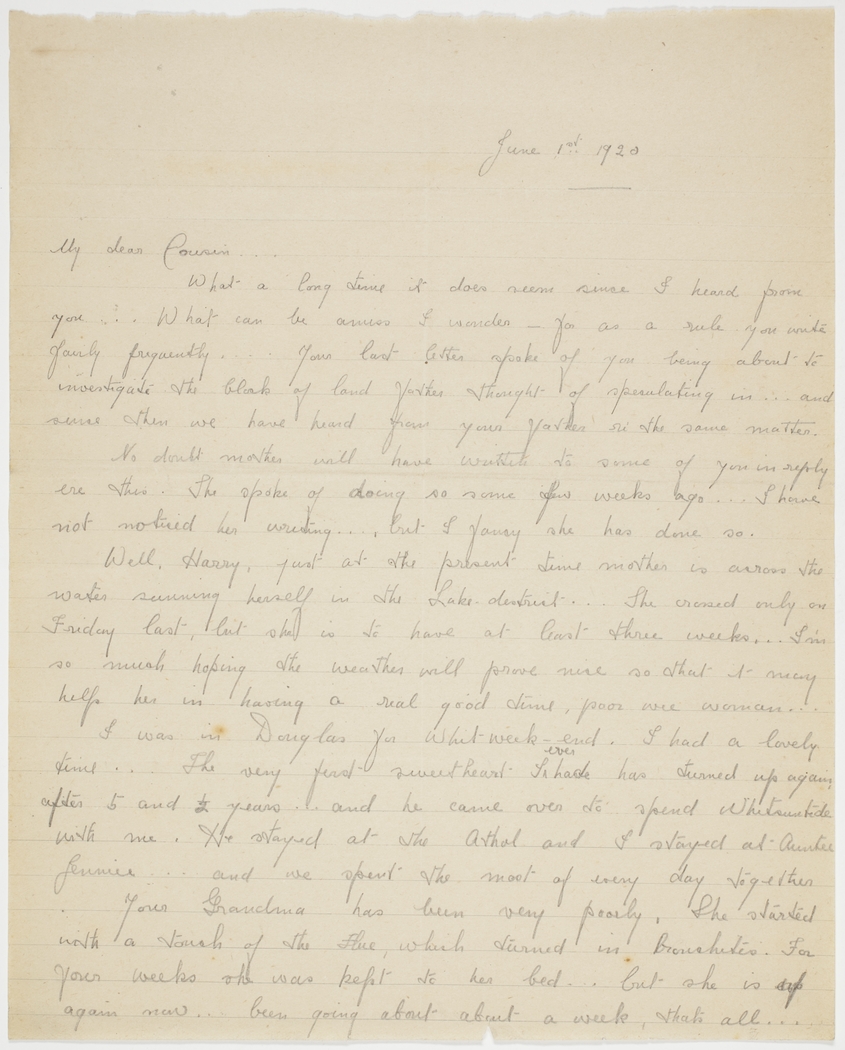 June 1st 1920
My dear Cousin....
What a long time it does seem since I heard from
you ... What can be amiss I wonder – for as a rule you write
fairly frequently.... Your last letter spoke of you being about to
investigate the block of land father thought of speculating in... and
since then we have heard from your father on the same matter.
No doubt mother will have written to some of you in reply
ere this. She spoke of doing so some few weeks ago... I have
not noticed her writing...., but I fancy she has done so.
Well, Harry, just at the present time mother is across the
water sunning herself in the Lake-district... She crossed only on
Friday last, but she is to have at least three weeks... I'm
so much hoping the weather will prove nice so that it may
help her in having a real good time, poor wee woman...
I was in Douglas for Whit-week-end. I had a lovely
time... The very first sweetheart I ever had has turned up again,
after 5 and ½ years... and he came over to spend Whitsuntide
with me. He stayed at the Athol and I stayed at Auntie
Jennie ... and we spent the most of every day together
. Your Grandma has been very poorly, She started
with a touch of the Flue, which turned in Bronchetis. For
four weeks she was kept to her bed... but she is up
again now.. been going about about a week, that's all...